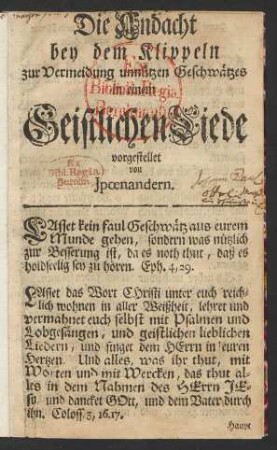 Die Andacht
bey dem Klippeln
zur Vermeidung unnützen Geschwätzes
in einem
Geistlichen Liede
vorgestellet
von
Jpœnandern.
Ex
Biblioth. Regia
Berolinensi
Ex
Bibl. Regia
Berolin.
LAsset kein faul Geschwätz aus eurem
Munde gehen, sondern was nützlich
zur Besserung ist, da es noth thut, daß es
holdseelig sey zu hören. Eph. 4, 29.
LAsset das Wort Christi unter euch reich-
lich wohnen in aller Weißheit, lehret und
vermahnet euch selbst mit Psalmen und
Lobgesängen, und geistlichen lieblichen
Liedern, und singet dem HErrn in euren
Hertzen. Und alles, was ihr thut, mit
Worten und mit Wercken, das thut al-
les in dem Nahmen des HErrn JE-
su, und dancket GOtt, und dem Vater durch
ihn. Coloss. 3, 16. 17.
Haupt